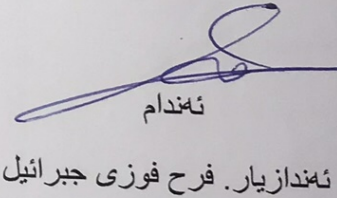 ئەندام
ئەندازیار. فرح فوزی جبرائیل